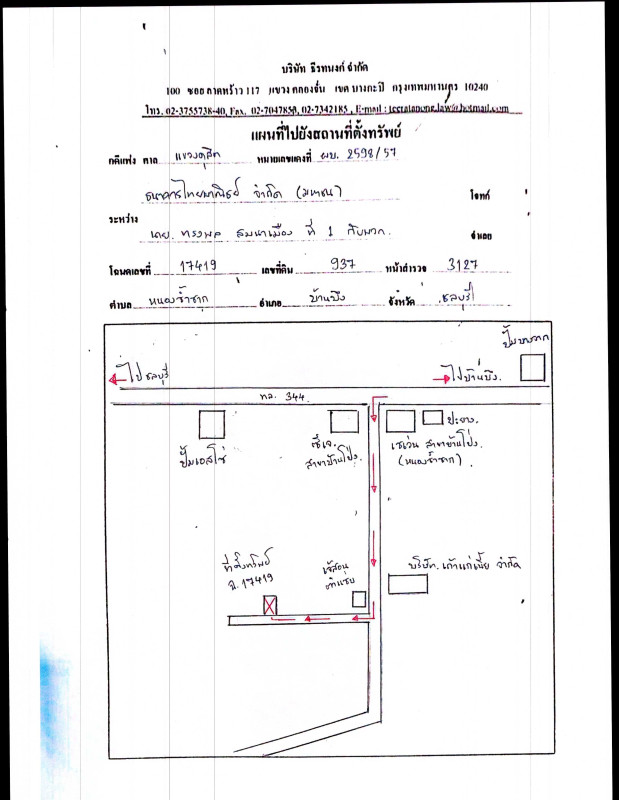 บริษัท ธีรทนงค์ จำกัด
100 ซอย ลาดพร้าว 117 แขวง คลองจั่น เขต บางกะปิ กรุงเทพมหานคร 10240
โทร. 02-3755738-40, Fax. 02-7047858, 02-7342185, E-mail : teeratanong.law@hotmail.com
แผนที่ไปยังสถานที่ตั้งทรัพย์
คดีแพ่ง ศาล แขวงดุสิต หมายเลขแดงที่ ผบ. 2598/57
ธนาคารไทยพาณิชย์ จำกัด (มหาชน) โจทก์
ระหว่าง
นาย ทรงพล ที่ 1 กับพวก จำเลย
โฉนดเลขที่ 17419 เลขที่ดิน 937 หน้าสำรวจ 3127
ตำบล หนองซ้ำซาก อำเภอ บ้านบึง จังหวัด ชลบุรี
ปั๊มบางจาก
ไปชลบุรี
ไปบ้านบึง
ทล. 344
ปั๊มเอสโซ่
ซีเจ.
สาขาบ้านโป่ง.
ปะยาง.
เซเว่น สาขาบ้านโป่ง.
(หนองซ้ำซาก)
ที่ตั้งทรัพย์
ฉ.17419
ตำแซ่บ
บริษัท. เก้าแก่เนี้ย จำกัด